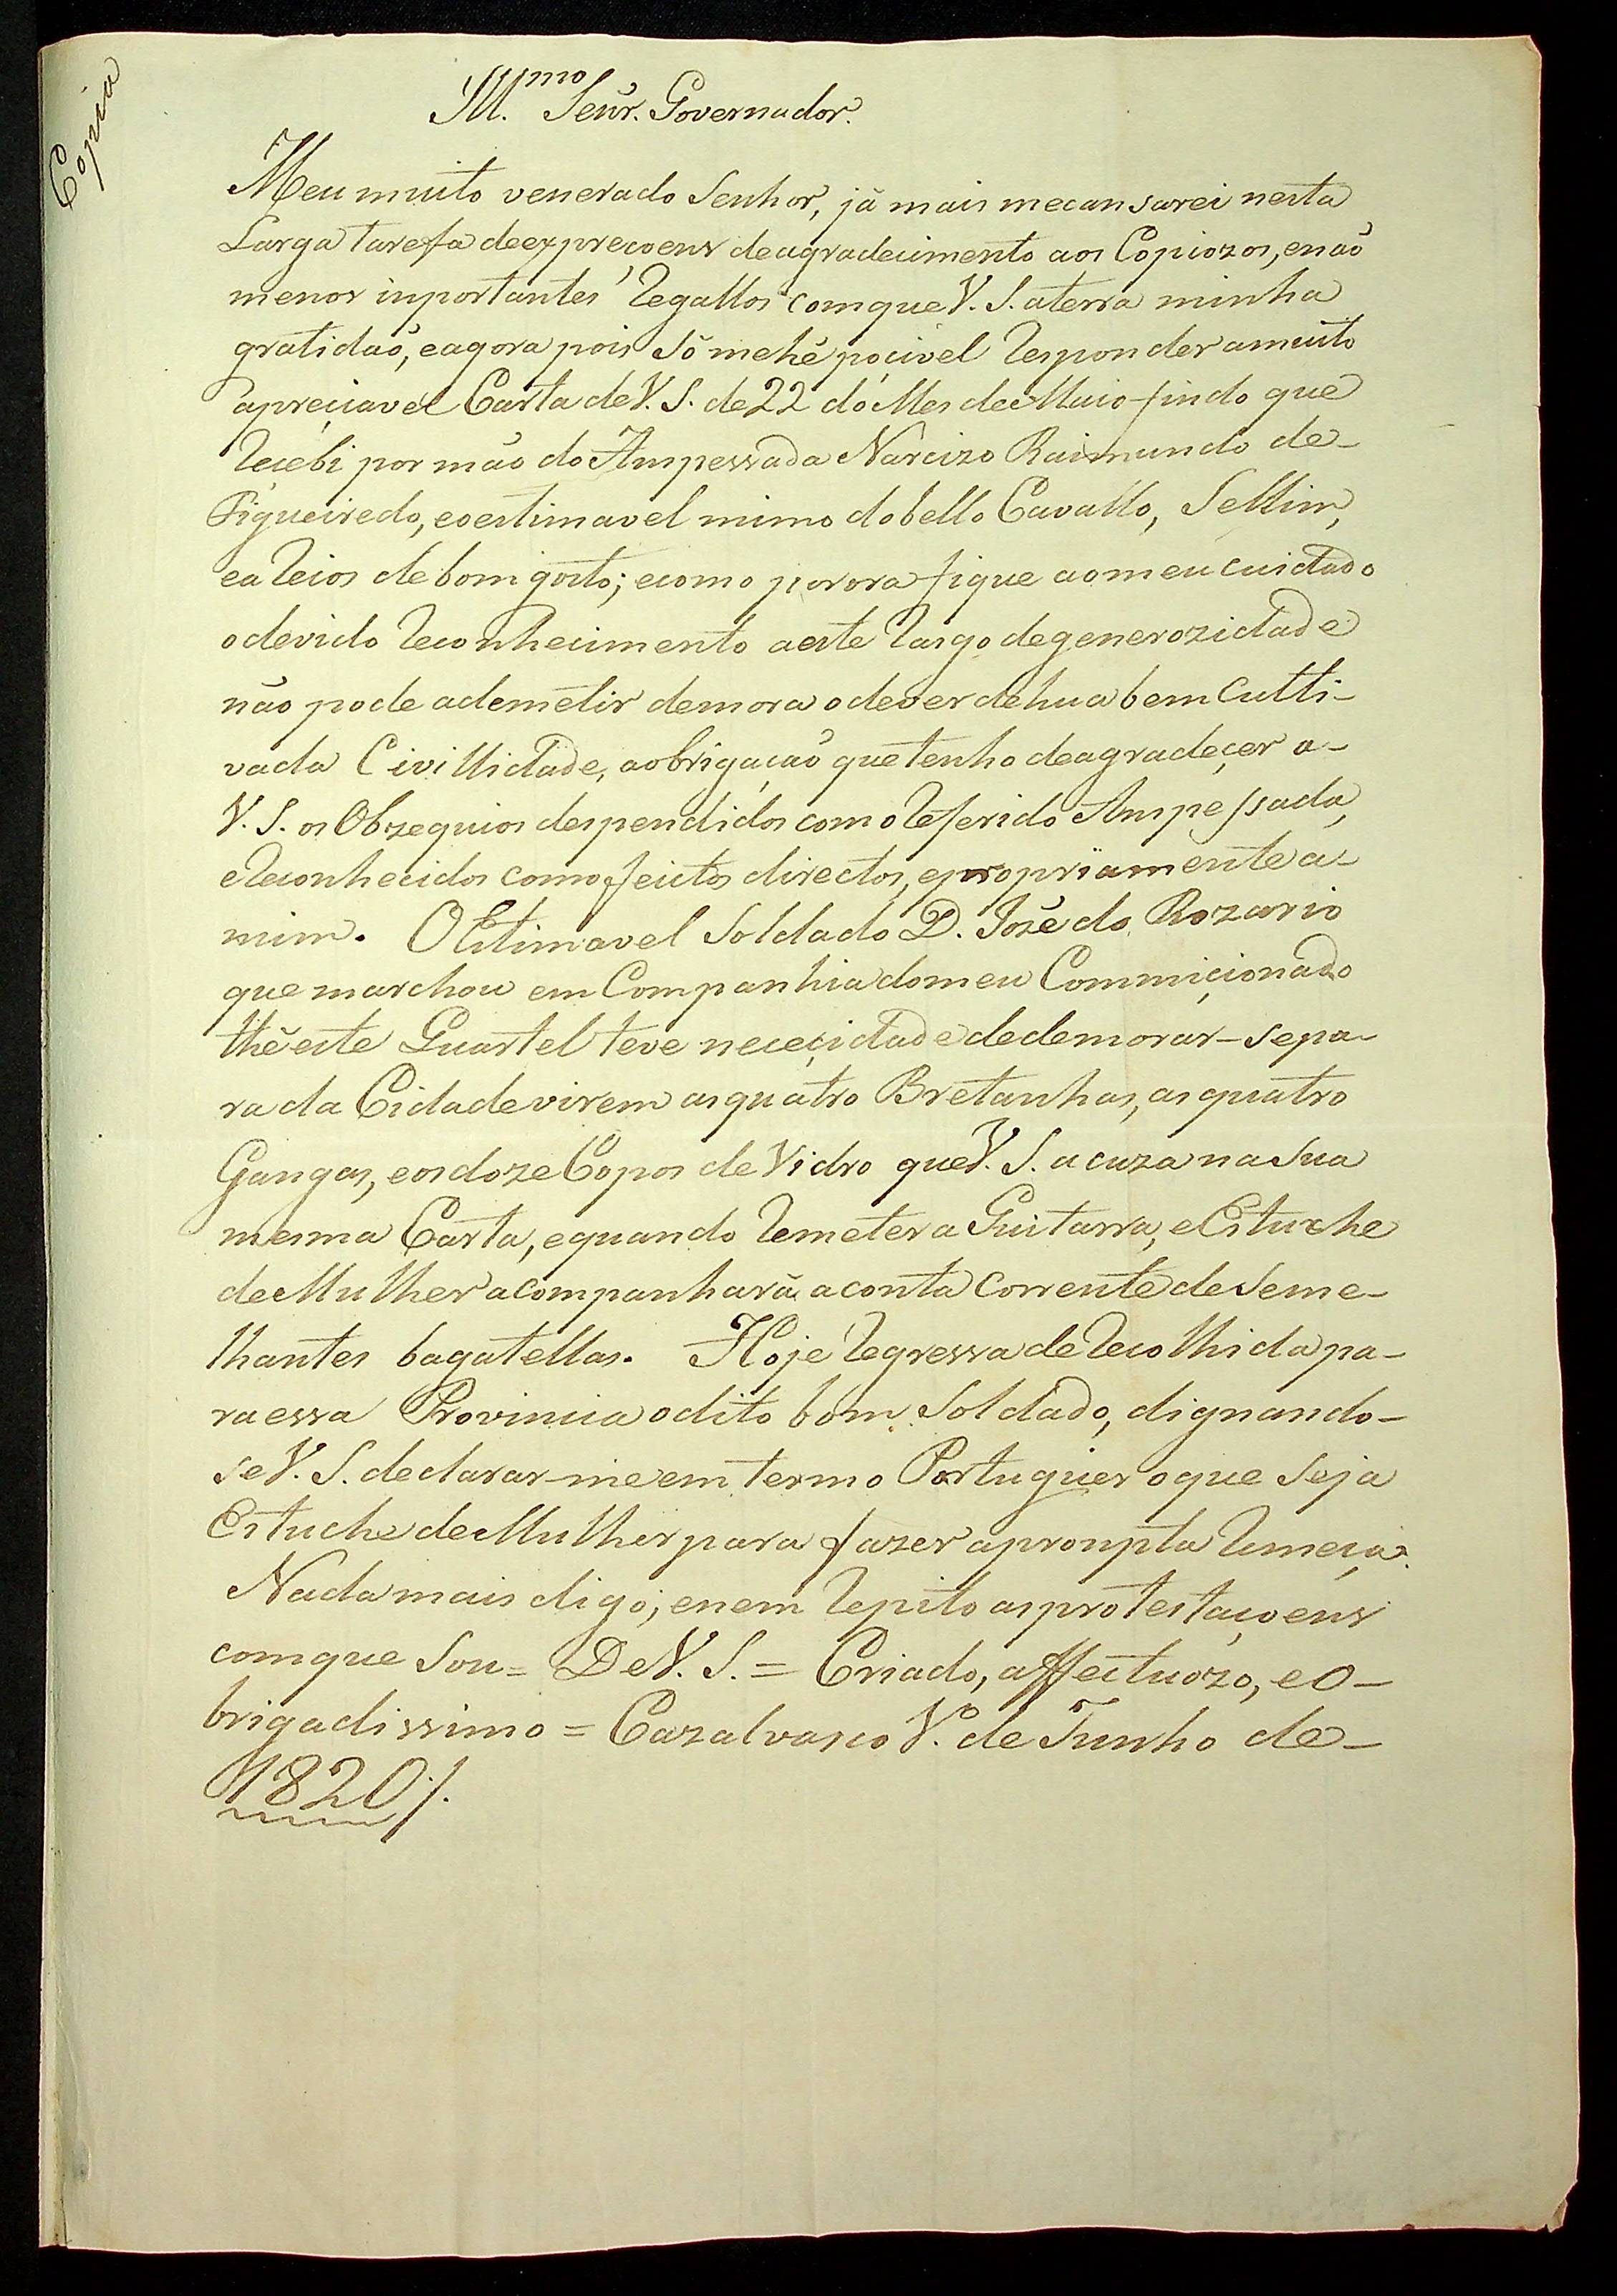 Copia
Ill.mo Senr. Governador.
Meu muito venerado Senhor, já mais mecansarei nesta
Larga tarefa deexpreçoens deagradecimento aos Copiozos, enaõ
menos inportantes regallos comque V. S. aterra minha
gratidaõ, eagora pois só mehé poçivel responder amuito
apreçiavel Carta de V. S. de 22 do Mes de Maio findo que
recebi por maõ do Anspessada Narcizo Raimundo de-
Figueiredo, eoestimavel mimo dobello Cavallo, Sellim,
eareios debom gosto; ecomo porora fique aomeu cuidado
odevido reconhecimento aeste rasgo degenerozidade
naõ pode ademetir demora odever dehua bem Culti-
vada Civillidade, aobrigaçaõ quetenho deagradeçer a-
V. S. os Obzequios despendidos como referido Anspessada,
ereconhecidos como feitos directos, epropriamente a-
mim. OEstimavel Soldado D. Jozé do Rozario
que marchou em Companhia domeu Commiçionado
thé este Quartel teve neceçidade dedemorar-sepa-
ra da Cidade virem asquatro Bretanhas, asquatro
Gangas, eosdoze Copos de Vidro que V. S. acuza nasua
mesma Carta, equando remeter a Guitarra, e Estuche
de Mulher acompanhará aconta Corrente de Seme-
lhantes bagatellas. Hoje regressa de recolhida pa-
raessa Provincia odito bom Soldado, dignando-
se V. S. declarar-me em termo Portuguez oque Seja
Estuche de Mulher para fazer apronpta remeça.
Nadamais digo; enem repito asprotestaçoens
comque Sou = De V. S. = Criado, affectuozo, eo-
brigadissimo = Cazalvasco V.º de Junho de-
1820 /.